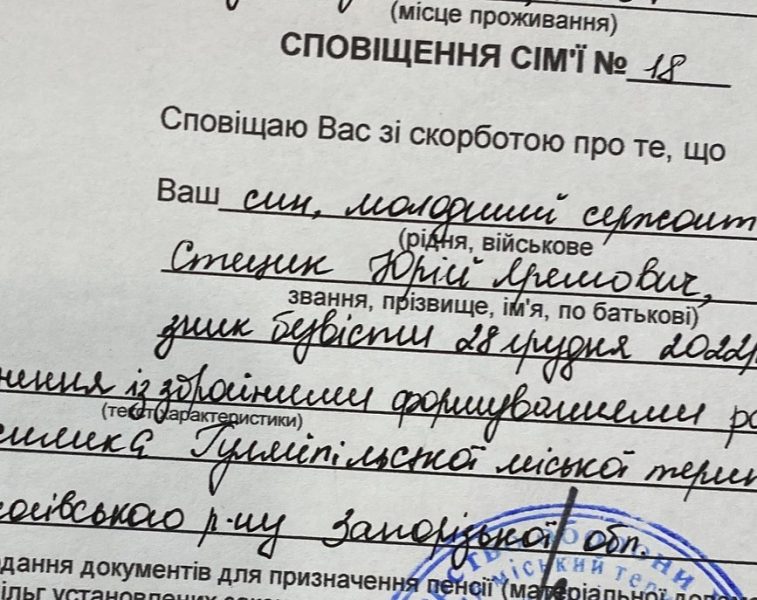 (місце проживання)
СПОВІЩЕННЯ СІМ'Ї № 18
Сповіщаю Вас зі скорботою про те, що
Ваш син, молодший сержант
(рідня, військове
Стецик Юрій Яремович,
звання, прізвище, ім'я, по батькові)
зник безвісти 28 грудня 2022р
нення із збройними формуваннями ро
(текст характеристики)
Гуляйпільської міської терит
р-ну Запорізької обл.
одання документів для призначення пенсії (матеріальної допомо
пільг установлених зако